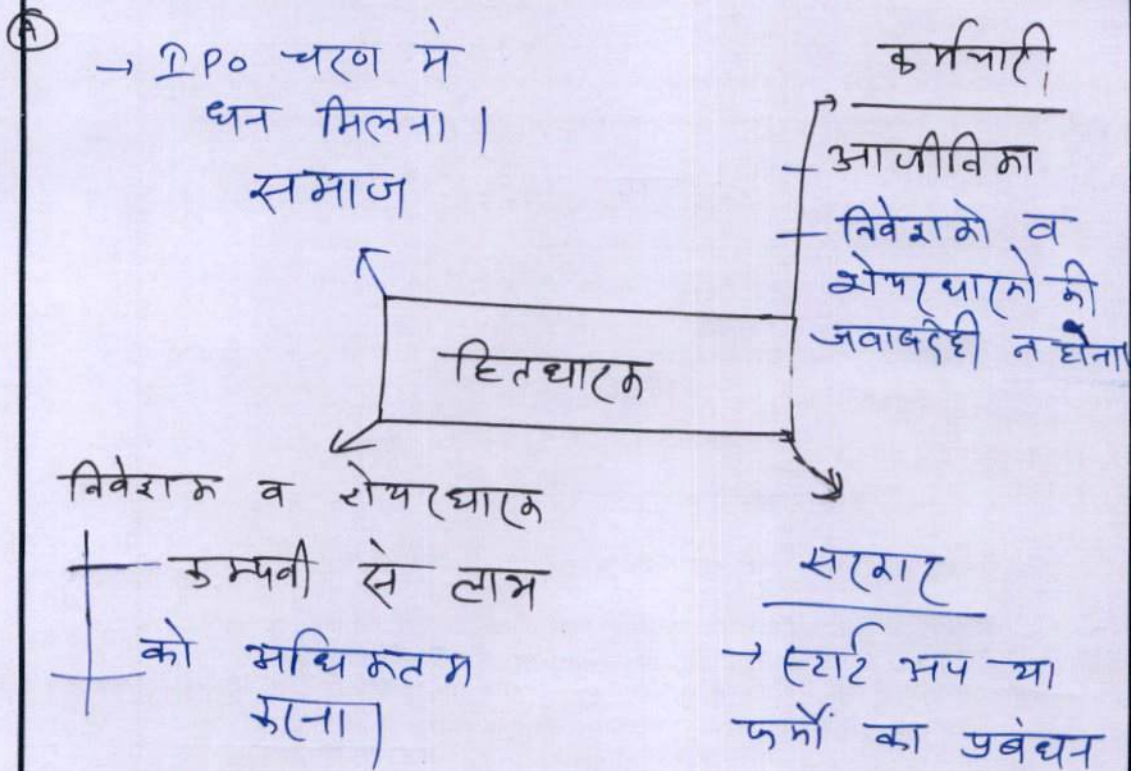 (A)
→ IPO चरण में
धन मिलना।
समाज
कर्मचारी
आजीविका
निवेशकों व
शेयरधारकों की
जवाबदेही न होना
हितधारक
निवेशक व शेयरधारक
कम्पनी से लाभ
को अधिकतम
करना।
सरकार
→ स्टार्ट अप या
फर्मों का प्रबंधन